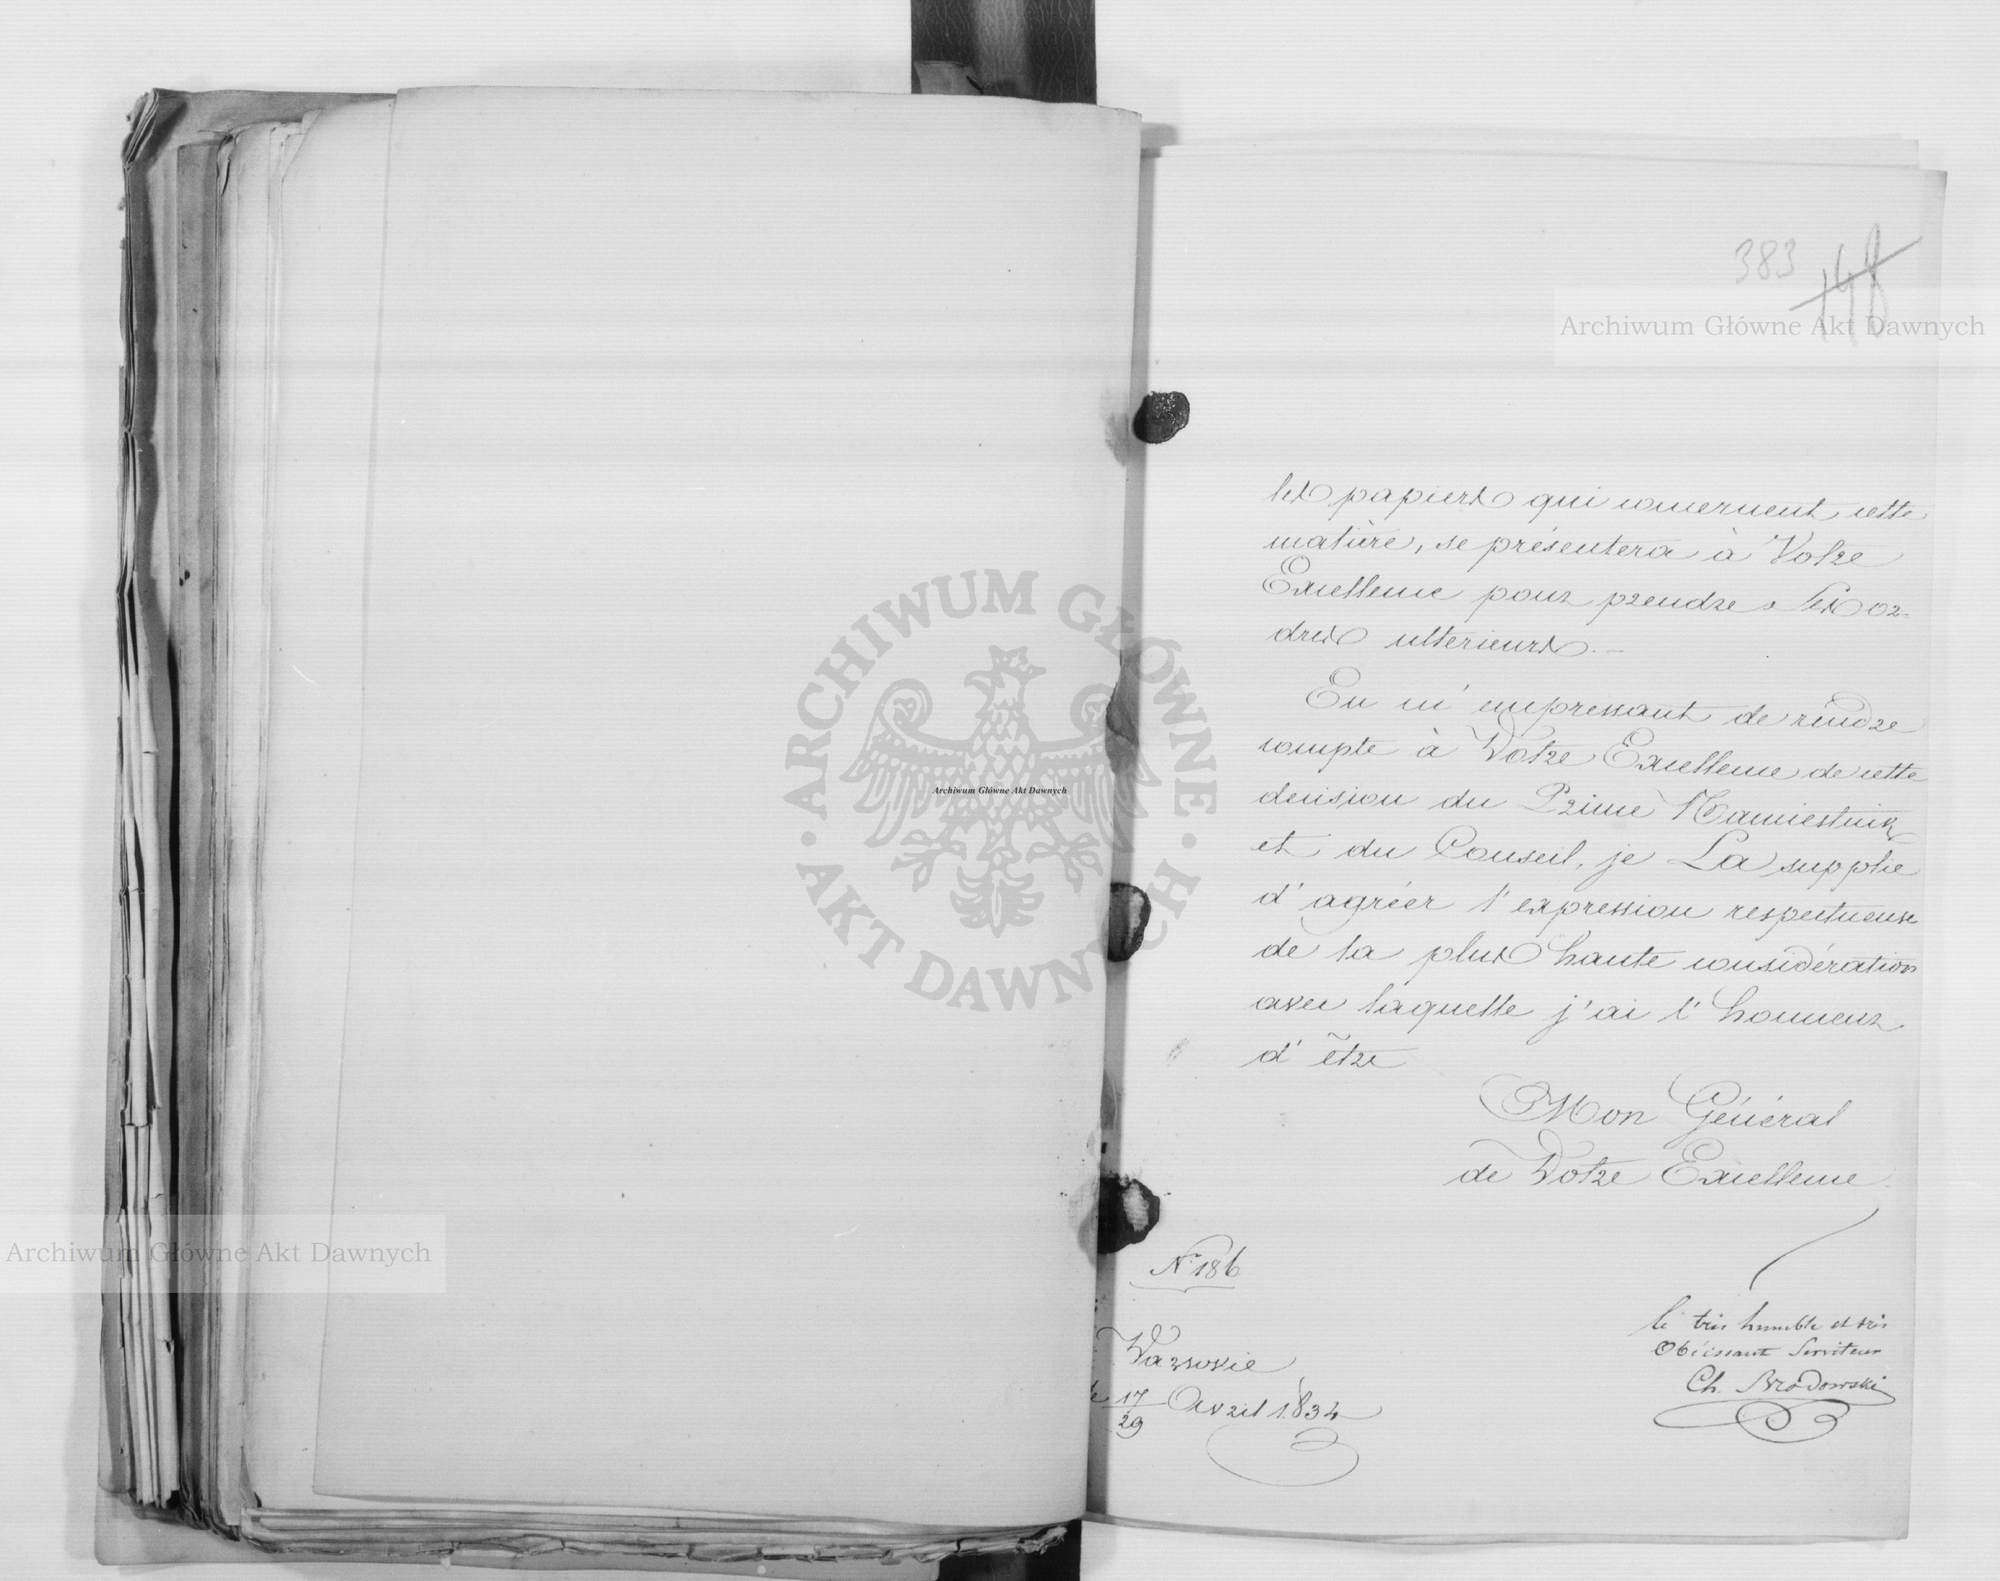 383 148
Archiwum Główne Akt Dawnych
les papiers qui concernent cette
matière, se présentera à Votre
Excellence pour prendre Ses or-
dres ultérieurs. —
En m'empressant de rendre
compte à Votre Excellence de cette
decision du Prince Namiestnik
et du Conseil, je La supplie
d'agréer l'expression respectueuse
de la plus haute considération
avec laquelle j'ai l'honneur
d'être
Mon Général
de Votre Excellence
le très humble et très
Obéissant Serviteur
Ch. Brodowski
N° 186
Varsovie
le 17/29 Avril 1834
ARCHIWUM GŁÓWNE · AKT DAWNYCH ·
Archiwum Główne Akt Dawnych
Archiwum Główne Akt Dawnych